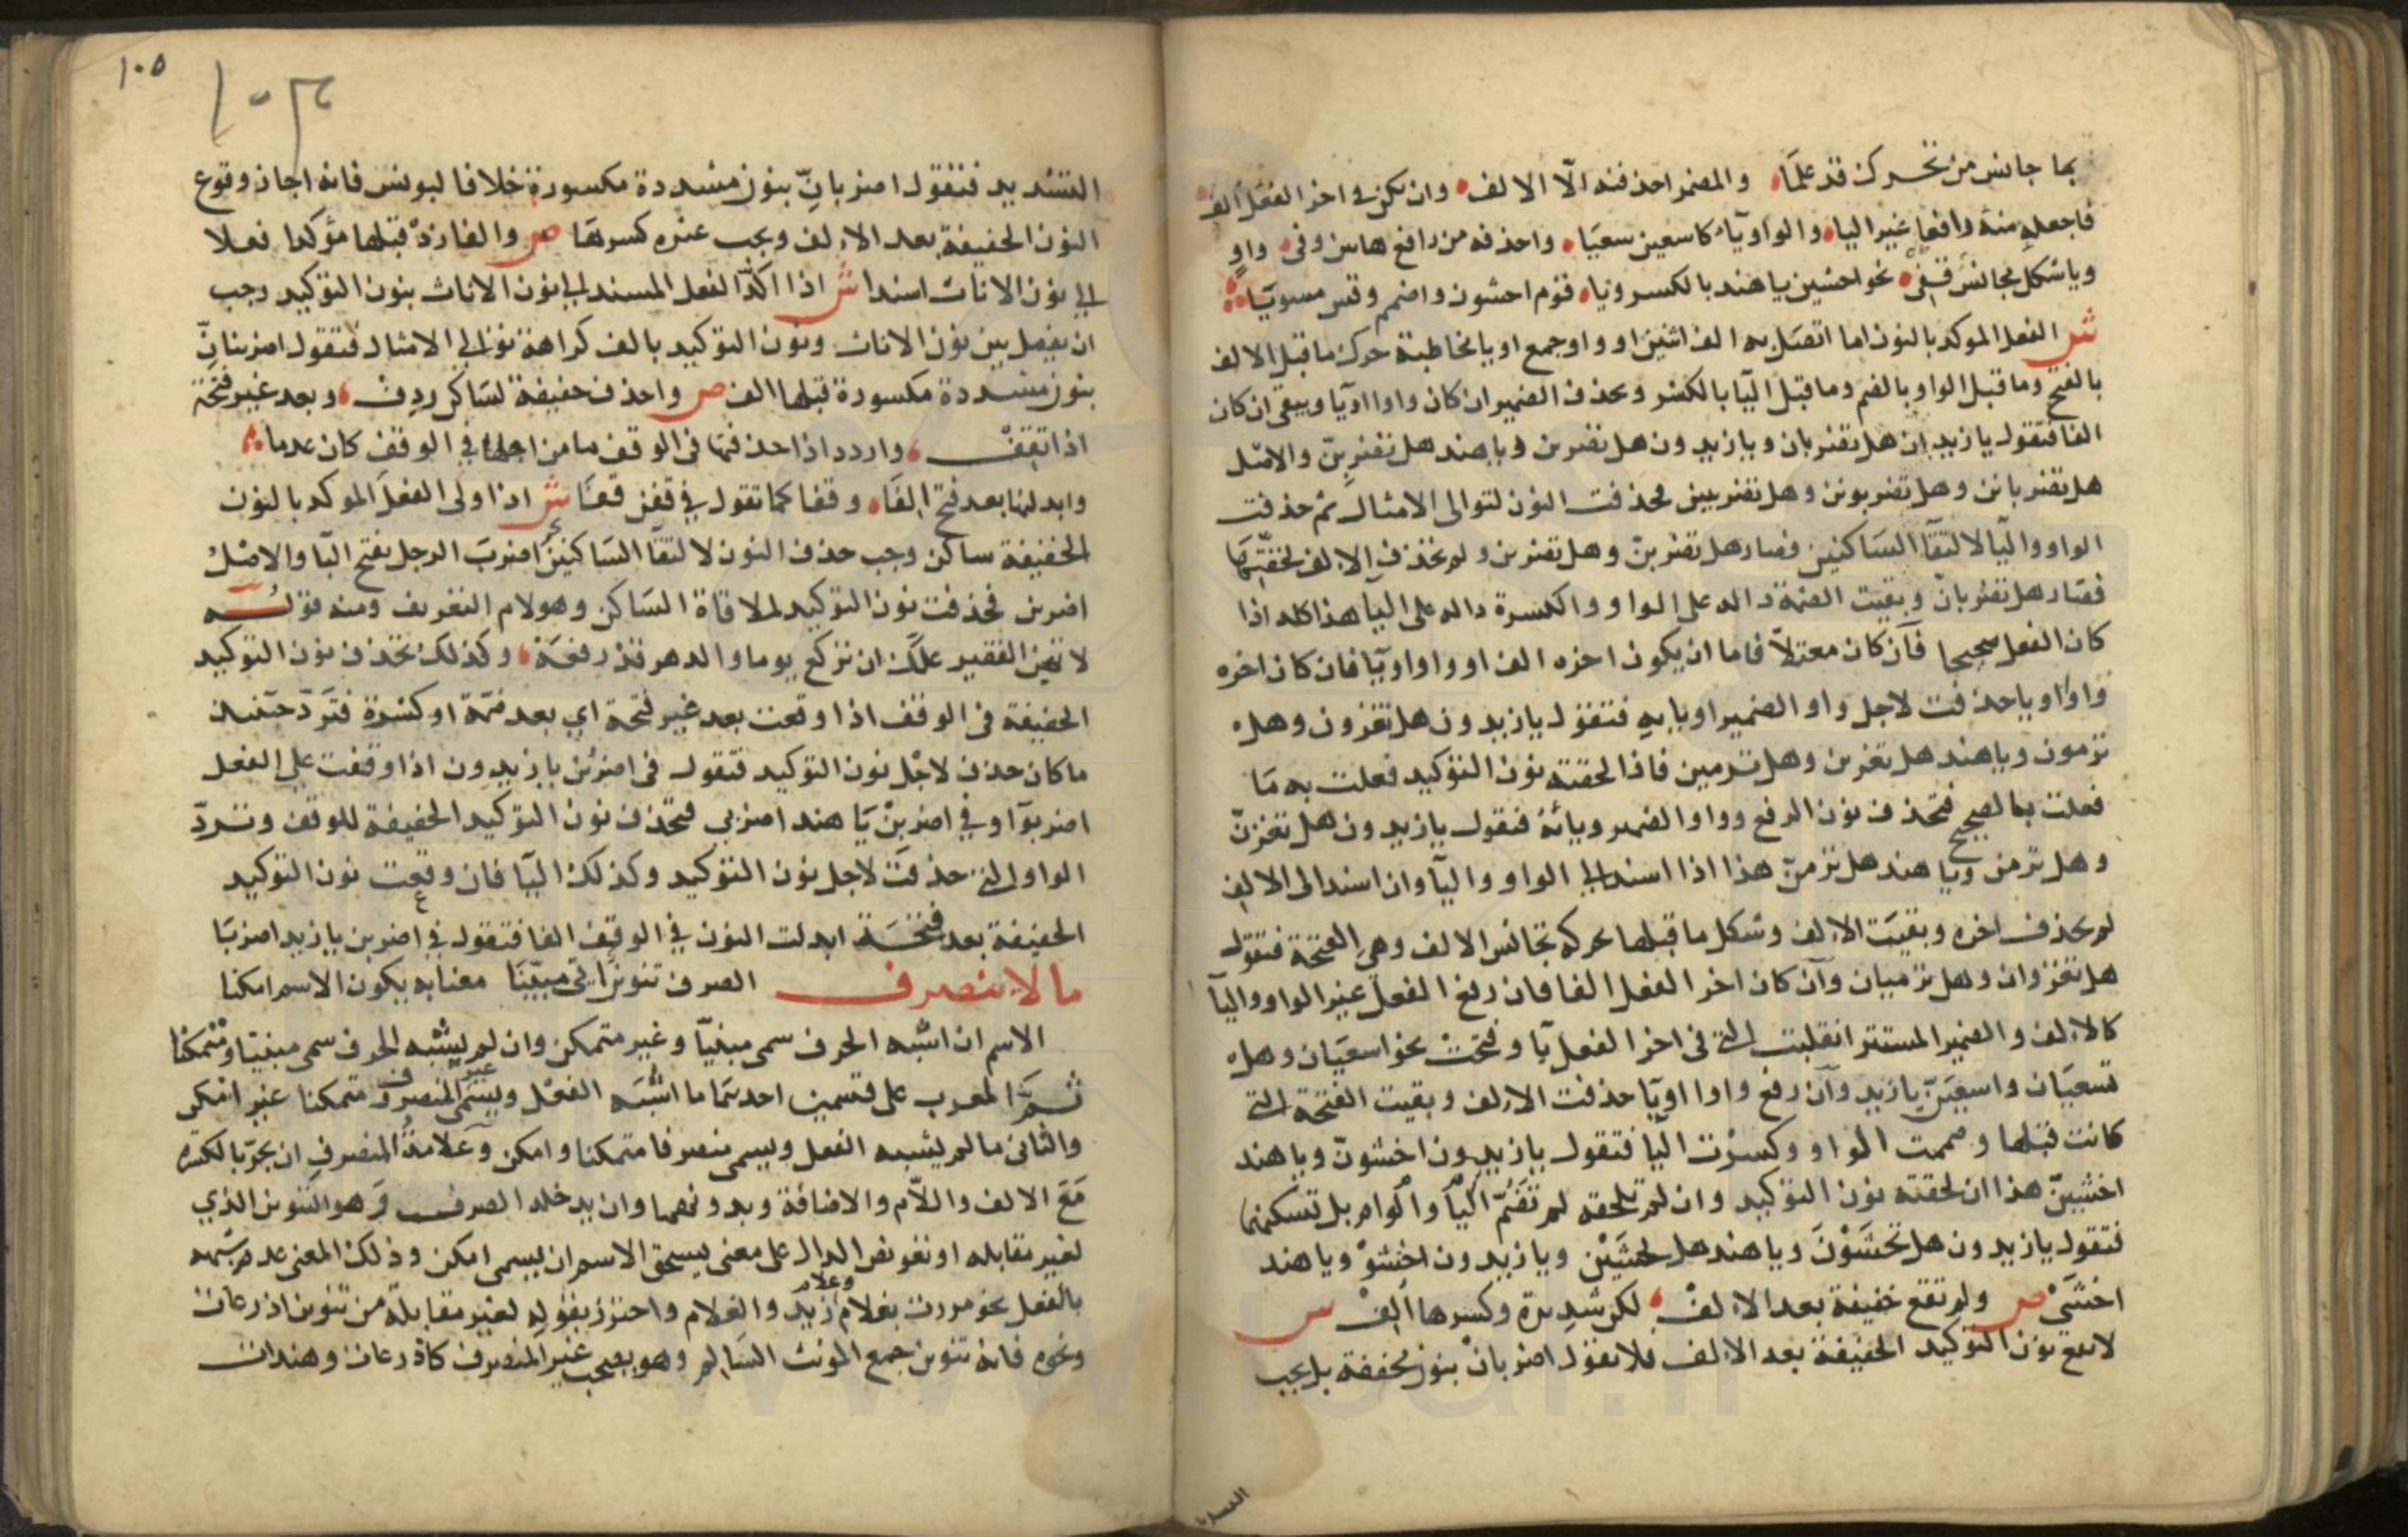 بما جانس من تحرك قد علما والمضمر احذفنه الا الالف وان يكن في اخر الفعل الف
فاجعله منه رافعا غير اليا والواو ياء كاسعين سعيا واحذفه من رافع هاتين وفي واو
ويا شكل مجانس قفي نحو اخشين يا هند بالكسر ويا قوم اخشون واضمم وقس مسويا
ش الفعل الموكد بالنون اما اتصل به الف اثنين او واو جمع او يا مخاطبة حرك ما قبل الالف
بالفتح وما قبل الواو بالضم وما قبل اليا بالكسر ويحذف الضمير ان كان واوا او يا ويبقى ان كان
الفا فتقول يا زيدان هل تضربان ويا زيدون هل تضربن ويا هند هل تضربن والاصل
هل تضربانن وهل تضربونن وهل تضربينن فحذفت النون لتوالي الامثال ثم حذفت
الواو واليا لالتقا الساكنين فصار هل تضربن وهل تضربن ولم تحذف الالف لخفتها
فصار هل تضربان وبقيت الضمة دالة على الواو والكسرة دالة على اليا هذا كله اذا
كان الفعل صحيحا فان كان معتلا فاما ان يكون اخره الف او واوا او يا فان كان اخره
واوا او يا حذفت لاجل واو الضمير او يايه فتقول يا زيدون هل تغزون وهل
ترمون ويا هند هل تغزين وهل ترمين فاذا لحقته نون التوكيد فعلت به ما
فعلت بالصحيح فتحذف نون الرفع وواو الضمير ويائه فتقول يا زيدون هل تغزن
وهل ترمن ويا هند هل ترمن هذا اذا اسند الي الواو واليا وان اسند الى الالف
لم يحذف اخره وبقيت الالف وشكل ما قبلها بحركة تجانس الالف وهي الفتحة فتقول
هل تغزوان وهل ترميان وان كان اخر الفعل الفا فان رفع الفعل غير الواو واليا
كالالف والضمير المستتر انقلبت التي في اخر الفعل يا وفتحت نحو اسعيان وهل
تسعيان واسعين يا زيد وان رفع واوا او يا حذفت الالف وبقيت الفتحة التي
كانت قبلها وضممت الواو وكسرت اليا فتقول يا زيدون اخشون ويا هند
اخشين هذا ان لحقته نون التوكيد وان لم تلحقه لم تضم اليا والواو بل تسكنها
فتقول يا زيدون هل تخشون ويا هند هل تخشين ويا زيدون اخشو ويا هند
اخشي ص ولم تقع خفيفة بعد الالف لكن شديدة وكسرها الف ش
لا تقع نون التوكيد الخفيفة بعد الالف فلا تقول اضربان بنون مخففة بل يجب
١٠٥
١٠٣
التشديد فتقول اضربان بنون مشددة مكسورة خلافا ليونس فانه اجاز وقوع
النون الخفيفة بعد الالف ويجب عنده كسرها ص والفا زد قبلها مؤكدا فعلا
الي نون الاناث اسندا ش اذا اكد الفعل المسند الي نون الاناث بنون التوكيد وجب
ان يفصل بين نون الاناث ونون التوكيد بالف كراهة توالي الامثال فتقول اضربنان
بنون مشددة مكسورة قبلها الف ص واحذف خفيفة لساكن ردف وبعد غير فتحة
اذا تقف واردد اذا حذفتها في الوقف ما من اجلها في الوقف كان عدما
وابدلنها بعد فتح الفا وقفا كما تقول في قفن قفا ش اذا ولى الفعل الموكد بالنون
الخفيفة ساكن وجب حذف النون لالتقا الساكنين اضرب الرجل بفتح البا والاصل
اضربن فحذفت نون التوكيد لملاقاة الساكن وهو لام التعريف ومنه قوله
لا تهين الفقير علك ان تركع يوما والدهر قد رفعه وكذلك تحذف نون التوكيد
الخفيفة في الوقف اذا وقعت بعد غير فتحة اي بعد ضمة او كسرة فترد حينئذ
ما كان حذف لاجل نون التوكيد فتقول في اضربن يا زيدون اذا وقفت على الفعل
اضربوا وفي اضربن يا هند اضربي فتحذف نون التوكيد الخفيفة للوقف وترد
الواو التي حذفت لاجل نون التوكيد وكذلك اليا فان وقعت نون التوكيد
الخفيفة بعد فتحة ابدلت النون في الوقف الفا فتقول في اضربن يا زيد اضربا
ما لا ينصرف الصرف تنوين اتى مبينا معنا به يكون الاسم امكنا
الاسم ان اشبه الحرف سمى مبنيا وغير متمكن وان لم يشبه الحرف سمى مبنيا ومتمكنا
ثم المعرب على قسمين احدهما ما اشبه الفعل ويسمى غير المنصرف ومتمكنا غير امكن
والثاني ما لم يشبه الفعل ويسمى منصرفا متمكنا وامكن وعلامة المنصرف ان يجر بالكسرة
مع الالف واللام والاضافة وبدونهما وان يدخله الصرف وهو التنوين الذي
لغير مقابله او تعويض الدال على معنى يستحق الاسم ان يسمى امكن وذلك المعنى عدم شبهه
بالفعل نحو مررت بغلام وغلام زيد والغلام واحترز بقوله لغير مقابلة من تنوين اذرعات
ونحوه فانه تنوين جمع المونث السالم وهو يصحب غير المنصرف كاذرعات وهندات